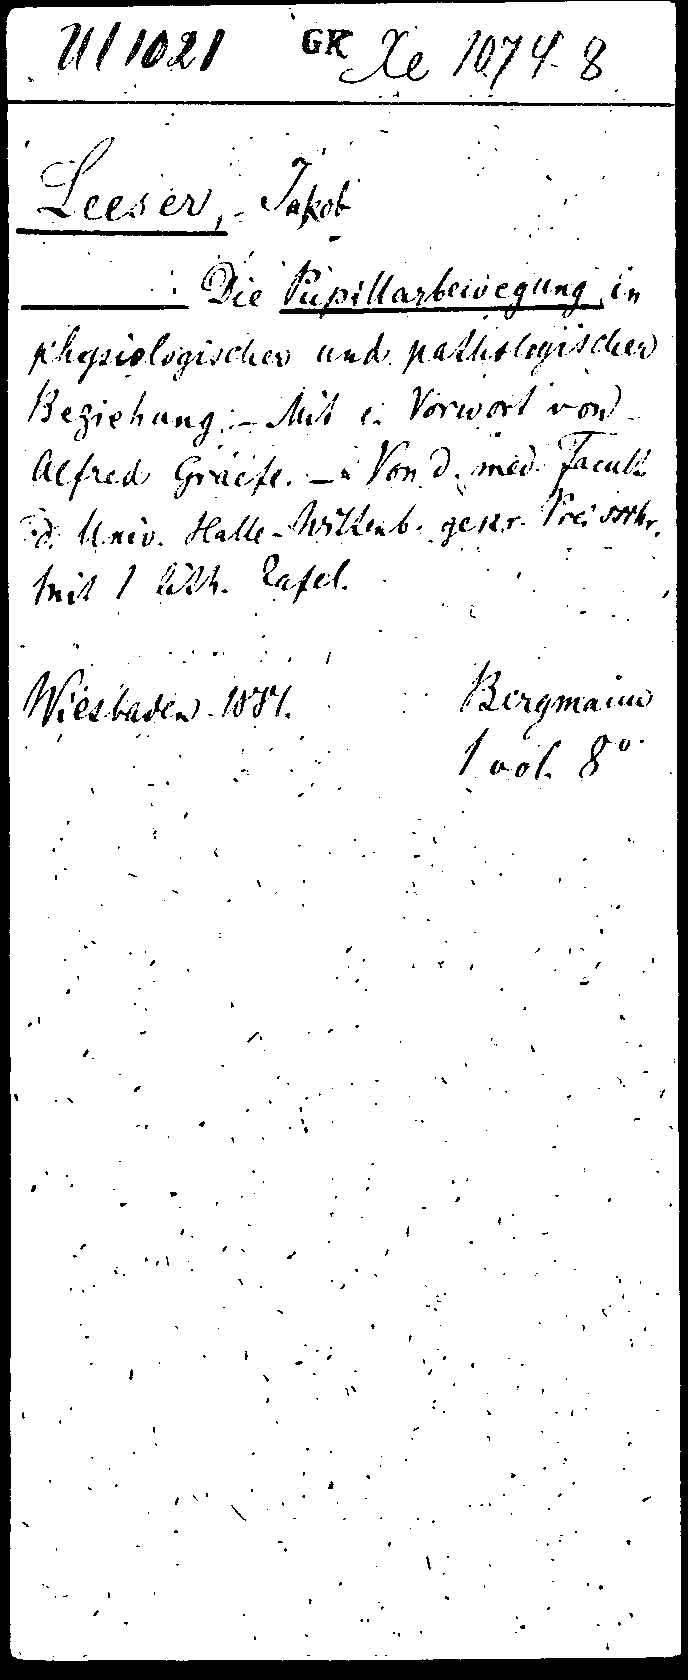 Ul 1021 GK Xe 1074-8
Leeser, Jakob
: Die Pupillarbewegung in
physiologischer und pathologischer
Beziehung. - Mit e. Vorwort von
Alfred Gräfe. - Von d. med. Facult.
d. Univ. Halle-Wittenb. gekr. Preisschr.
Mit 1 lith. Tafel.
Wiesbaden 1881. Bergmann
1 vol. 8°